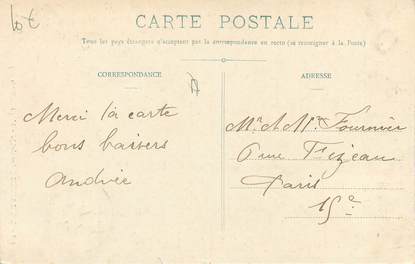 10€
CARTE POSTALE
Tous les pays étrangers n'acceptent pas la correspondance au recto (se renseigner à la Poste)
CORRESPONDANCE
ADRESSE
Merci la carte
bons baisers
Andrée
Mr & Mme Fournier
6 rue Fizeau
Paris
15e